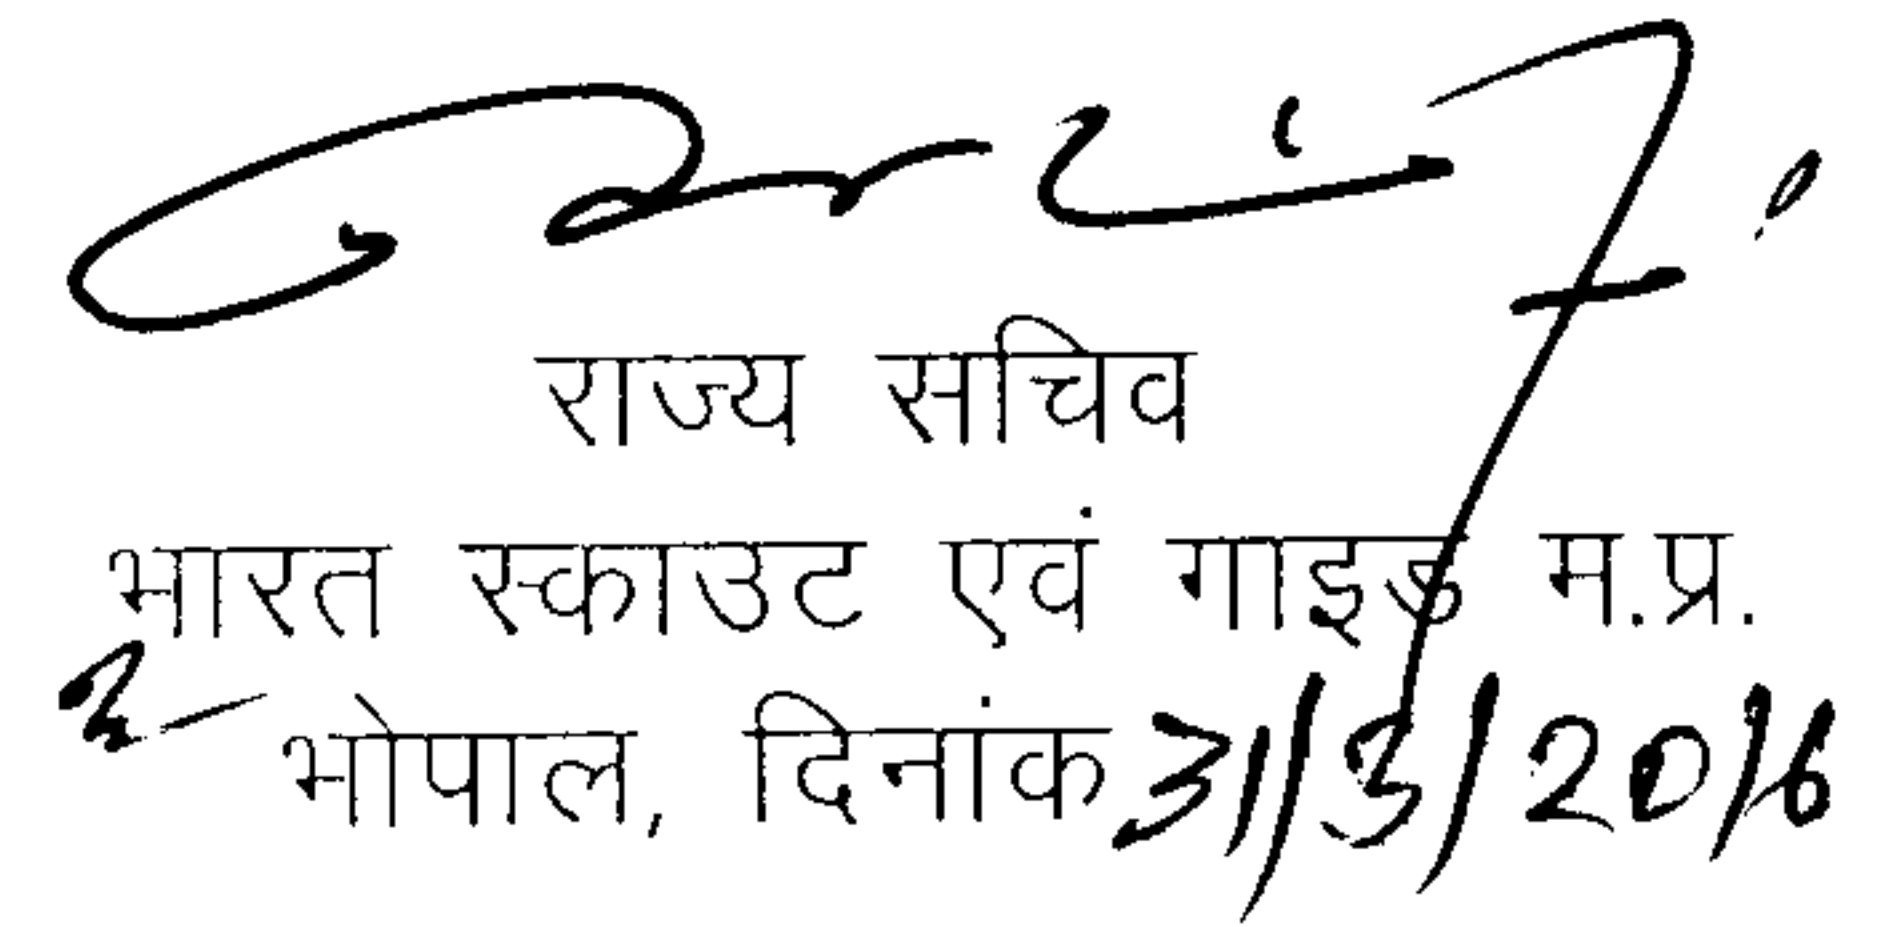 राज्य सचिव
भारत स्काउट एवं गाइड म.प्र.
भोपाल, दिनांक 31/3/2016